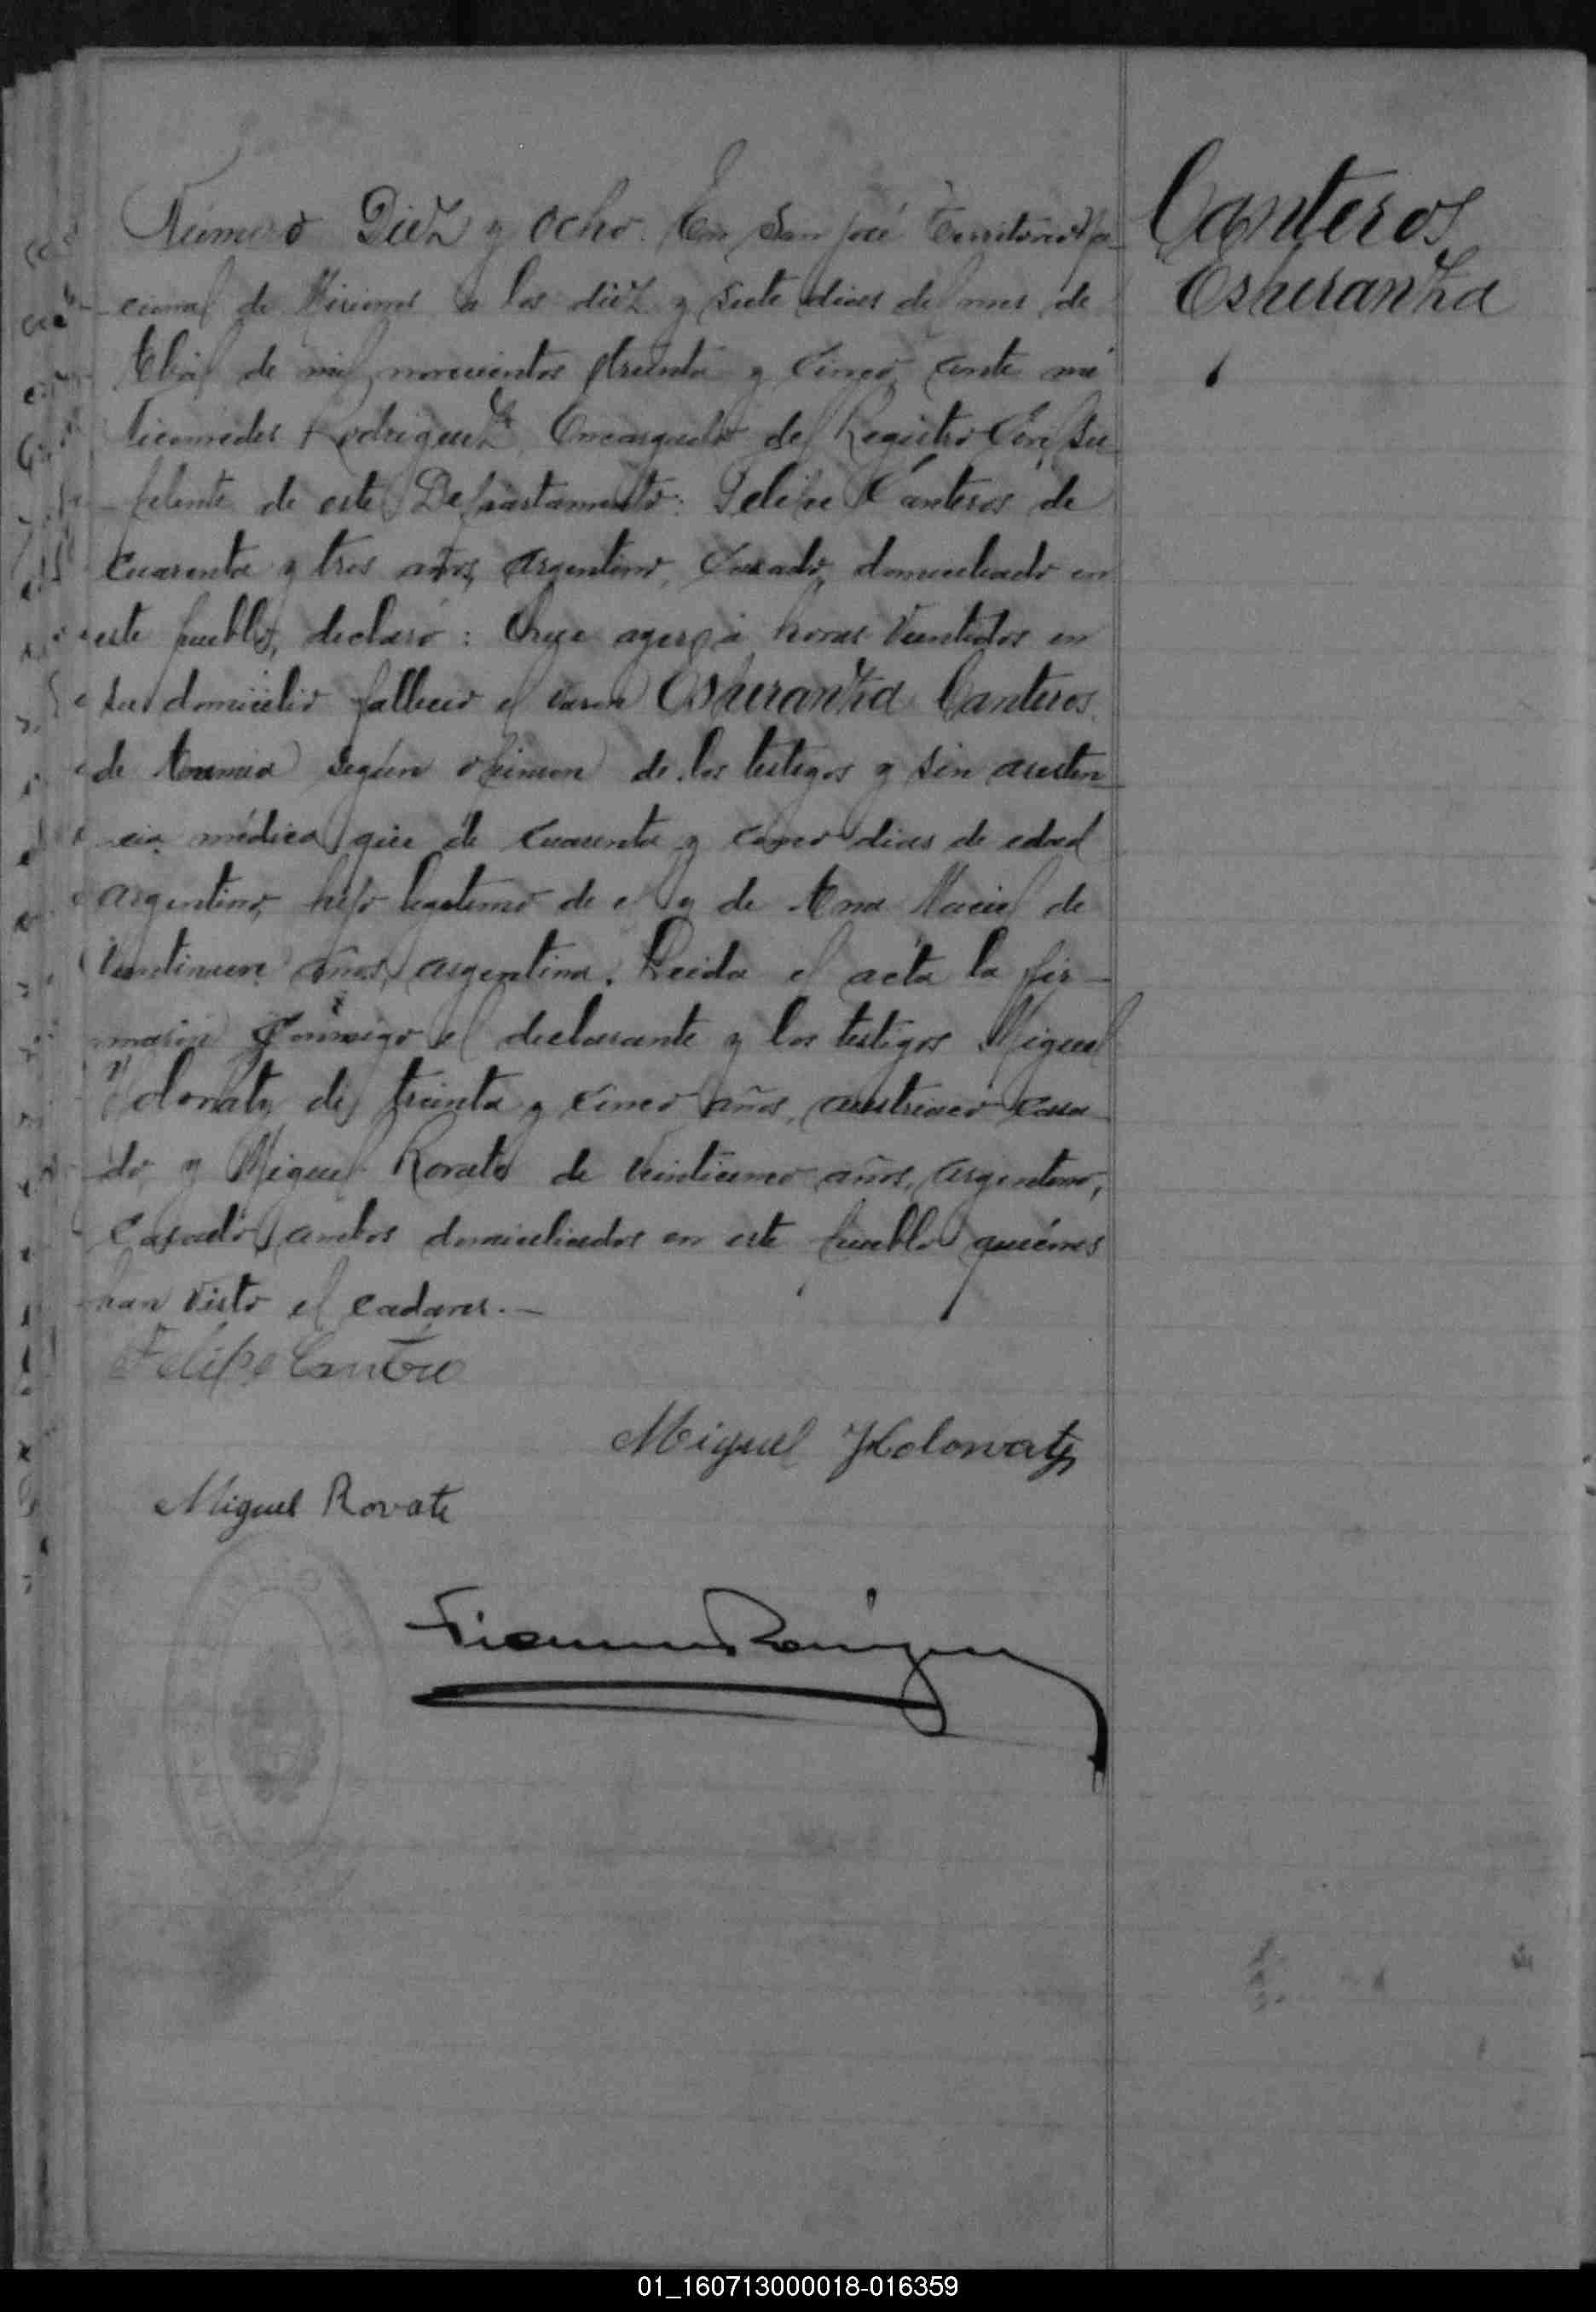 Canteros
Esperanza
Número Diez y Ocho. En San José Territorio Na-
cional de Misiones a los diez y siete dias del mes de
Abril de mil novecientos treinta y cinco, ante mi
Nicomedes Rodriguez, Encargado del Registro Civil Su-
plente de este Departamento: Felipe Canteros de
cuarenta y tres años, argentino, casado, domiciliado en
este pueblo, declaró: Que ayer a horas veintidos en
su domicilio falleció el varon Esperanza Canteros
de Anemia según opinion de los testigos y sin asisten-
cia médica, que de cuarenta y cinco dias de edad
argentino, hijo legitimo de el y de Ana Maciel de
años, argentina. Leida el acta la fir-
maron conmigo el declarante y los testigos Miguel
Holonaty de treinta y cinco años, austriaco casa-
do, y Miguel Rovato de veinticinco años, argentino,
casado, ambos domiciliados en este pueblo quiénes
han visto el cadaver.—
Felipe Cantero
Miguel Holowaty
Miguel Rovate